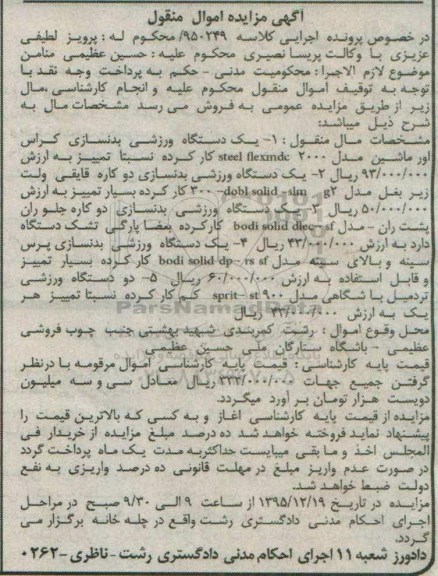 آگهی مزایده اموال منقول
در خصوص پرونده اجرایی کلاسه ۹۵۰۲۴۹/ محکوم له : پرویز لطیفی
عزیزی با وکالت پریسا نصیری محکوم علیه : حسین عظیمی منامن
موضوع لازم الاجرا : محکومیت مدنی - حکم به پرداخت وجه نقد با
توجه به توقیف اموال منقول محکوم علیه و انجام کارشناسی ،مال
زیر از طریق مزایده عمومی به فروش می رسد مشخصات مال به
شرح ذیل میباشد:
مشخصات مال منقول : ۱- یک دستگاه ورزشی بدنسازی کراس
اور ماشین مدل steel flexmdc ۲۰۰۰ کار کرده نسبتا تمییز به ارزش
۹۳/۰۰۰/۰۰۰ ریال ۲- یک دستگاه ورزشی بدنسازی دو کاره قایقی ولت
زیر بغل مدل dobl solid -slm g۲ -۳۰۰ کار کرده بسیار تمییز به ارزش
۵۰/۰۰۰/۰۰۰ ریال ۳- یک دستگاه ورزشی بدنسازی دو کاره جلو ران
پشت ران - مدل bodi solid dlec sf کارکرده بعضا پارگی تشک دستگاه
دارد به ارزش ۴۳/۰۰۰/۰۰۰ ریال ۴- یک دستگاه ورزشی بدنسازی پرس
سینه و بالای سینه مدل bodi solid-dp- rs sf کار کرده بسیار تمییز
و قابل استفاده به ارزش ۶۰/۰۰۰/۰۰۰ ریال ۵- دو دستگاه ورزشی
تردمیل باشگاهی مدل sprit- st ۹۰۰ کم کار کرده نسبتا تمییز هر
یک به ارزش ریال
محل وقوع اموال : رشت کمربندی شهید بهشتی جنب چوب فروشی
عظیمی - باشگاه ستارگان ملی حسین عظیمی
قیمت پایه کارشناسی : قیمت پایه کارشناسی اموال مرقومه با در نظر
گرفتن جمیع جهات ۳۳۲/۰۰۰/۰۰۰ ریال معادل سی و سه میلیون
دویست هزار تومان بر آورد میگردد.
مزایده از قیمت پایه کارشناسی اغاز و به کسی که بالاترین قیمت را
پیشنهاد نماید فروخته خواهد شد ده درصد مبلغ مزایده از خریدار فی
المجلس اخذ و ما بقی میبایست حداکثر به مدت یک ماه پرداخت گردد
در صورت عدم واریز مبلغ در مهلت قانونی ده درصد واریزی به نفع
دولت ضبط خواهد شد.
مزایده در تاریخ ۱۳۹۵/۱۲/۱۹ از ساعت ۹ الی ۹/۳۰ صبح در مراحل
اجرای احکام مدنی دادگستری رشت واقع در چله خانه برگزار می
گردد.
دادورز شعبه ۱۱ اجرای احکام مدنی دادگستری رشت - ناظری - ۰۲۶۲